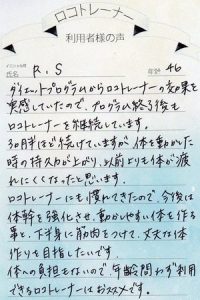 ロコトレーナー
利用者様の声
イニシャル可
氏名 R.S 年齢 46
ダイエットプログラムからロコトレーナーの効果を
実感していたので、プログラム終了後も
ロコトレーナーを継続しています。
30月半ほど続けていますが、体を動かした
時の持久力が上がり、以前よりも体が疲
れにくくなったと思います。
ロコトレーナーにも慣れてきたので、今後は
体幹を強化させ、動かしやすい体を作る
事と、下半身に筋肉をつけて、丈夫な体
作りを目指したいです。
体への負担もないので、年齢問わず利用
できるロコトレーナーはおススメです。